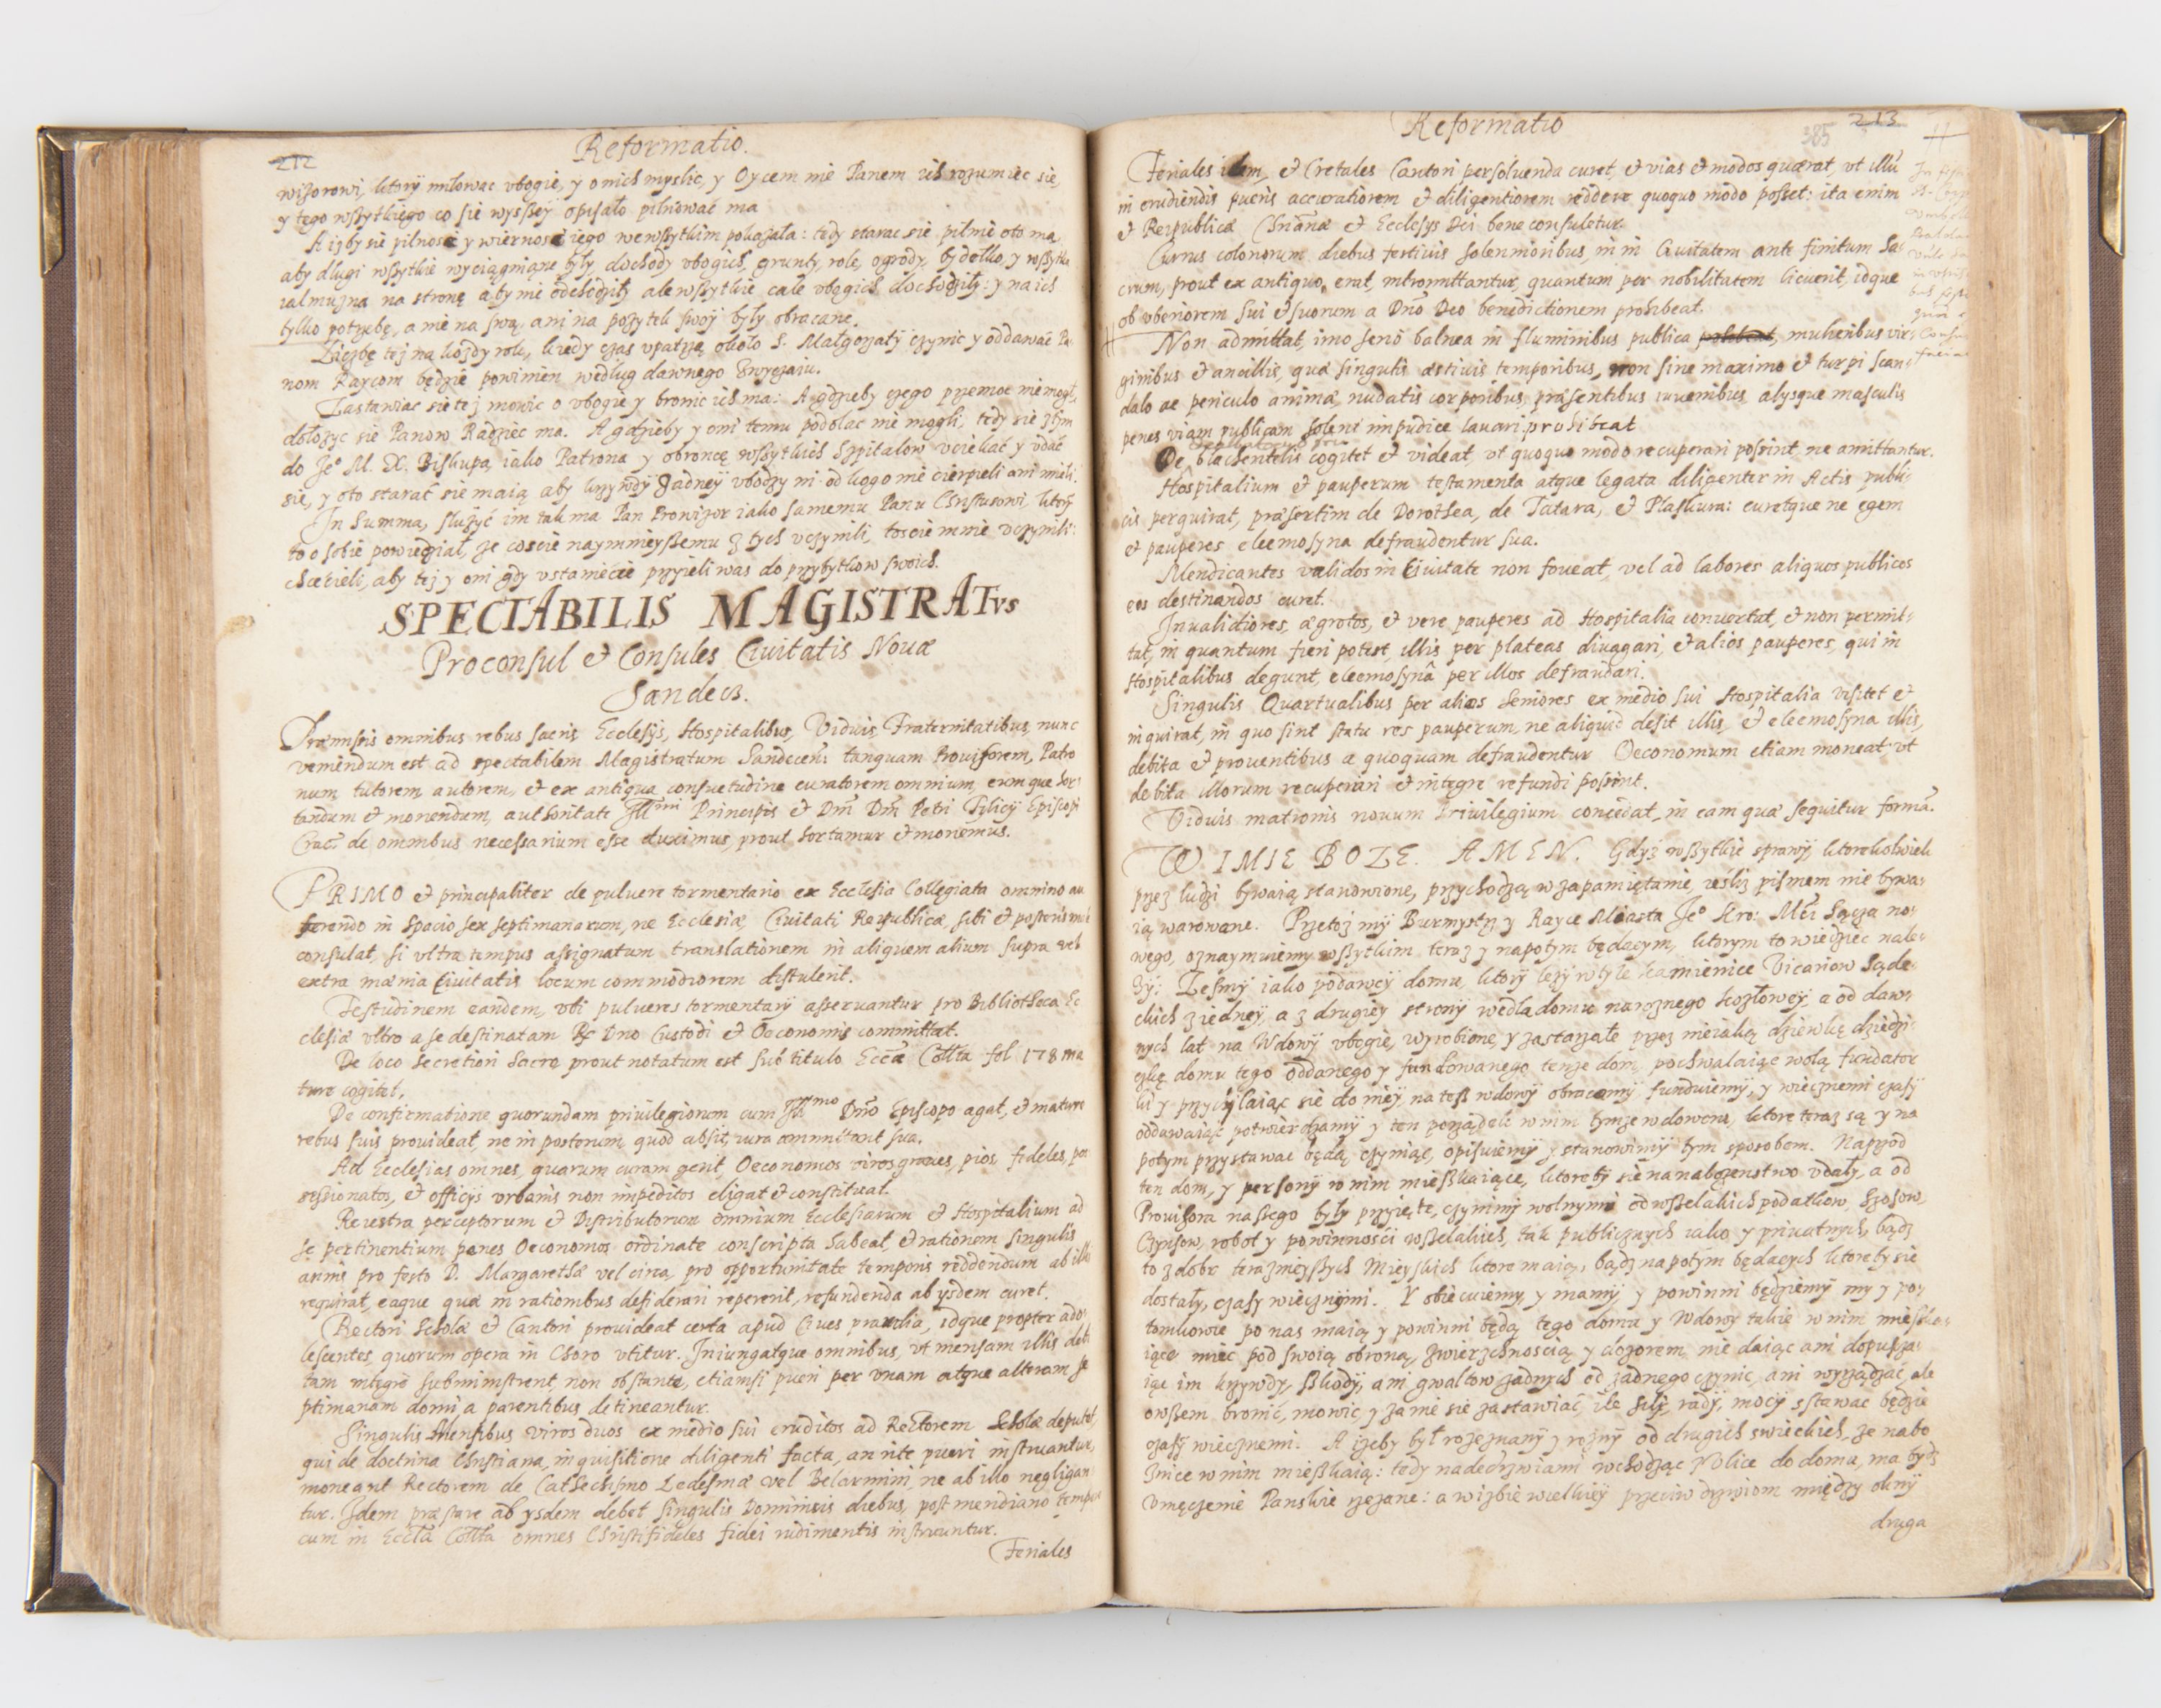 212
Reformatio.
wizorowi, ktory miłowac vbogie, y o nich myslic, y Oycem nie Panem ich rozumiec się,
y tego wszytkięgo co się wysszey opisało pilnować ma
A izby się pilnosc y wiernosc iego we wszytkim pokazala: tedy starac się pilnie oto ma,
aby dlugi wszytkie wyciągnione były, dochody vbogich, grunty, role, ogrody, bydełko, y wszytka
ialmuzna na stronę aby nie odchodziły ale wszytkie cale vbogich dochodziły: y na ich
tylko potrzebę, a nie na swą, ani na pozytek swoy były obracane.
Liczbę tez na kozdy rok, kiedy czas vpatrzą około S. Małgorzaty czynic y oddawać Pa-
nom Raycom będzie powinien według dawnego zwyczaiu.
Zastawiac się tez mowic o vbogie y bronic ich ma: A gdzieby czego przemoc nie mogł,
dołozyc się Panow Radziec ma. A gdzieby y oni temu podolac nie mogli, tedy się z tym
do Je° M. X. Biskupa, iako Patrona y obroncę wszytkich Szpitalow vciekać y vdać
się, y oto starać się maią aby krzywdy zadney vbodzy ni od kogo nie cierpieli ani mieli.
In Summa, służyć im tak ma Pan Prowizor iako samemu Panu Chrystusowi, ktory
to o sobie powiedział, ze coscie naymnieyszemu z tych vczynili, toscie mnie vczynili:
chcecieli, aby tez y oni gdy vstaniecie przyieli was do przybytkow swoich.
SPECTABILIS MAGISTRATVS
Proconsul & Consules Ciuitatis Nouæ
Sandecz.
Præmissis omnibus rebus sacris, Ecclesijs, Hospitalibus, Viduis, Fraternitatibus, nunc
veniendum est ad spectabilem Magistratum Sandecen: tanquam Prouisorem, Patro
num, tutorem, autorem, & ex antiqua consuetudine curatorem omnium, eumque hor-
tandum & monendum, authoritate Illmi Principis & Dni Dni Petri Tylicij Episcopi
Crac: de omnibus necessarium esse duximus, prout hortamur & monemus.
PRIMO et principaliter de puluere tormentario ex Ecclesia Collegiata omnino au
ferendo in spacio sex septimanarum, ne Ecclesiæ, Ciuitati, Reipublicæ, sibi & posteris male
consulat, si vltra tempus assignatum translationem in aliquem alium supra vel
extra mænia Ciuitatis locum commodiorem distulerit.
Testudinem eandem, vbi pulueres tormentarij asseruantur pro Bibliotheca Ec
clesiæ vltro a se destinatam R Dno Custodi & Oeconomis committat.
De loco secretiori Sacro prout notatum est sub titulo Eccæ Collta fol 178 ma
ture cogitet.
De confirmatione quorundam priuilegiorum cum Illmo Dno Episcopo agat, & mature
rebus suis prouideat, ne in posterum, quod absit, iura committant sua.
Ad Ecclesias omnes, quarum curam gerit, Oeconomos viros graues, pios, fideles, pos
sessionatos, & officijs vrbanis non impeditos eligat & constituat.
Reiestra perceptorum & Distributorum omnium Ecclesiarum & Hospitalium ad
se pertinentium penes Oeconomos ordinate conscripta habeat, & rationem singulis
annis pro festo D. Margarethæ vel circa, pro opportunitate temporis reddendam ab illis
requirat, eaque quæ in rationibus desiderari repererit, refundenda ab ysdem curet.
Rectori Scholæ & Cantori prouideat certa apud Ciues prandia, idque propter ado-
lescentes quorum opera in Choro vtitur. Iniungatque omnibus, vt mensam illis debi
tam integre subministrent, non obstante, etiamsi pueri per vnam atque alteram se
ptimanam domi a parentibus detineantur.
Singulis Mensibus viros duos ex medio sui eruditos ad Rectorem Scholæ deputet,
qui de doctrina Christiana, inquisitione diligenti facta, an rite pueri instruantur,
moneant Rectorem de Cathechismo Ledesmæ vel Belarmini, ne ab illo negligan-
tur. Idem præstare ab ysdem debet singulis Dominicis diebus, post meridiano tempore
cum in Eccla Collta omnes Christifideles fidei rudimentis instruuntur.
Feriales
Reformatio
385
213
Feriales idem, & Cretales Cantori persoluenda curet, & vias & modos quærat, vt illu
in erudiendis pueris accuratiorem & diligentiorem reddere quoquo modo posset: ita enim
& Reipublicæ Chrianæ & Ecclesijs Dei bene consuletur.
Currus colonorum diebus festiuis solennioribus, in Ciuitatem ante finitum Sa-
crum, prout ex antiquo, erat, intromittantur, quantum per nobilitatem licuerit, idque
ob vberiorem sui & suorum a Dno Deo benedictionem prohibeat.
Non admittat, imo serio balnea in fluminibus publica mulieribus vir-
ginibus & ancillis, quæ singulis æstiuis temporibus, non sine maximo & turpi scan-
dalo ac periculo animæ nudatis corporibus, præsentibus iuuenibus alysque masculis
penes viam publicam solent impudice lauari prohibeat
De blachentelis cogitet & videat, vt quoquo modo recuperari possint ne amittantur.
Hospitalium & pauperum testamenta atque legata diligenter in Actis publi-
cis perquirat, præsertim de Dorothea, de Tatara, & Plaskura: curetque ne egeni
& pauperes eleemosyna defraudentur sua.
Mendicantes validos in Ciuitate non foueat, vel ad labores aliquos publicos
eos destinandos curet.
Inualidiores, ægrotos, & vere pauperes ad Hospitalia conuertat, & non permit-
tat, in quantum fieri potest, illis per plateas diuagari, & alios pauperes, qui in
Hospitalibus degunt, eleemosyna per illos defraudari.
Singulis Quartualibus per alios Seniores ex medio sui Hospitalia visitet &
inquirat, in quo sint statu res pauperum, ne aliquid desit illis, & eleemosyna illis,
debita & prouentibus a quoquam defraudentur Oeconomum etiam moneat vt
debita illorum recuperari & integre refundi possint.
Viduis matronis nouum Priuilegium concedat, in eam quæ sequitur formã.
W IMIE BOZE. AMEN. Gdyz wszytkie sprawy, ktorekolwiek
przez ludzi bywaią stanowione, przychodzą w zapamiętanie, iesliz pismem nie bywa-
ią warowane. Przetoz my Burmystrz y Rayce Miasta Je° Kro: Mci Sącza no-
wego, oznaymuiemy wszytkim teraz y napotym będącym, ktorym to wiedziec nale-
zy: Zesmy iako podawcy domu, ktory lezy w tyle kamienice Vicariow Sąde-
ckich z iedney, a z drugiey strony wedla domu naroznego Kozłowey, a od daw-
nych lat na Wdowy vbogie, wyrobione, y zastarzałe przez nieiaką dziewkę dziedzi-
czkę domu tego oddanego y fundowanego tenze dom, pochwalaiąc wolą fundator
ki y przychylaiąc się do niey na tesz wdowy obracamy fundniemy, y wiecznemi czasy
oddawaiąc potwierdzamy y ten porządek w nim tymze wdowom, ktore teraz są y na
potym przystawac będą, czyniąc, opisuiemy y stanowimy tym sposobem. Naprzod
ten dom, y persony w nim mieszkaiące, ktoreby się na nabozenstwo vdały, a od
Prouisora naszego były przyięte, czynimy wolnymi od wszelakich podatkow, Szosow,
Czynszow, robot y powinnosci wszelakich, tak publicznych iako y priuatnych, bądz
to z dobr teraznieyszych Mieyskich ktore maią, bądz napotym będących ktoreby się
dostały, czasy wiecznymi. Y obiecuiemy, y mamy, y powinni będziemy my y po-
tomkowie po nas maią y powinni będą tego domu y Wdowy takie w nim mieszka-
iące miec pod swoią obroną, zwierzchnoscią y dozorem nie daiąc ani dopuszcza-
iąc im krzywdy, szkody, ani gwałtow zadnych od zadnego czynic, ani wyrządzać, ale
owszem bronić, mowic, y za nie się zastawiać, ile siły, rady, mocy sstawac będzie
czasy wiecznemi. A izeby był rozeznany y rozny od drugich swieckich, ze nabo
znice w nim mieszkaią: tedy nade drzwiami wchodząc z Vlice do domu, ma bydz
vmęczenie Panskie rzezane: a w izbie wielkiey przeciw drzwiom między okny
druga